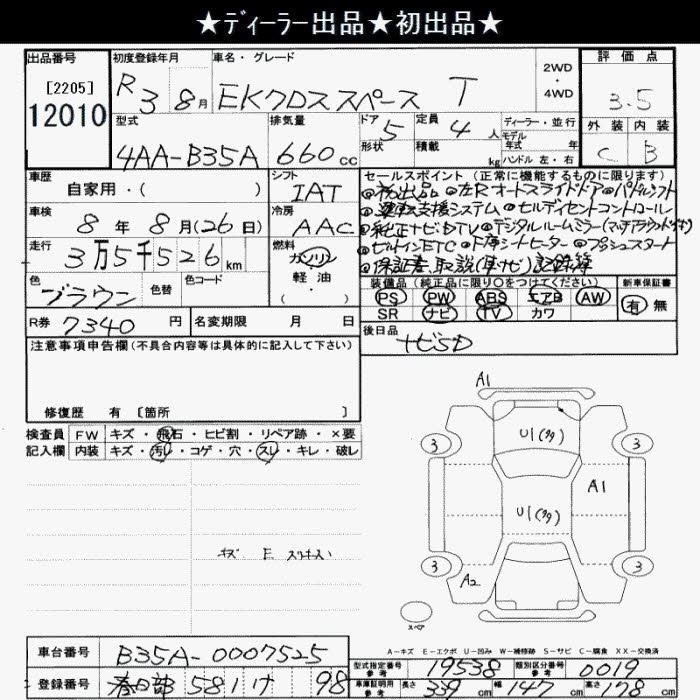 ★ディーラー出品★初出品★
出品番号
[2205]
12010
初度登録年月
R 3 8月
車名・グレード
EKクロススペース T
2WD
・
4WD
評価点
3.5
外装 内装
C B
型式
4AA-B35A
排気量
660cc
ドア 5
形状
定員 4人
積載 kg
ディーラー・並行
モデル年式 年
ハンドル 左・右
車歴
自家用・( )
シフト
IAT
車検
8年 8月(26日)
冷房
AAC
走行
3万5千526km
燃料
ガソリン
軽油
・( )
色
ブラウン
色替
色コード
セールスポイント(正常に機能するものに限ります)
◎初出品 ◎左Rオートスライドドア ◎パドルシフト
◎運転支援システム ◎ヒルディセントコントロール
◎純正ナビDTV ◎デジタルルームミラー(マルチアラウンド付き)
◎ビルトインETC ◎F席シートヒーター ◎プッシュスタート
◎保証書、取説(車、ナビ)記録簿
装備品(純正品に限り○をつけてください)
PS PW ABS エアB AW
SR ナビ TV カワ
新車保証書
有 無
R券 7340円
名変期限 月 日
後日品
ナビSD
注意事項申告欄(不具合内容等は具体的に記入して下さい)
修復歴 有 [箇所 ]
検査員
記入欄
FW キズ・飛石・ヒビ割・リペア跡・×要
内装 キズ・汚れ・コゲ・穴・スレ・キレ・破レ
キズ E スリキズ
A1
U1(多)
3
3
A1
U1(多)
3
3
A2
スペア
A-キズ E-エクボ U-凹み W-補修跡 S-サビ C-腐食 XX-交換済
車台番号
B35A-0007525
登録番号
春日部 581 け 98
型式指定番号
参考
19538
類別区分番号
参考
0019
車庫証明用
参考
長さ 339cm 幅 147cm 高さ 178cm